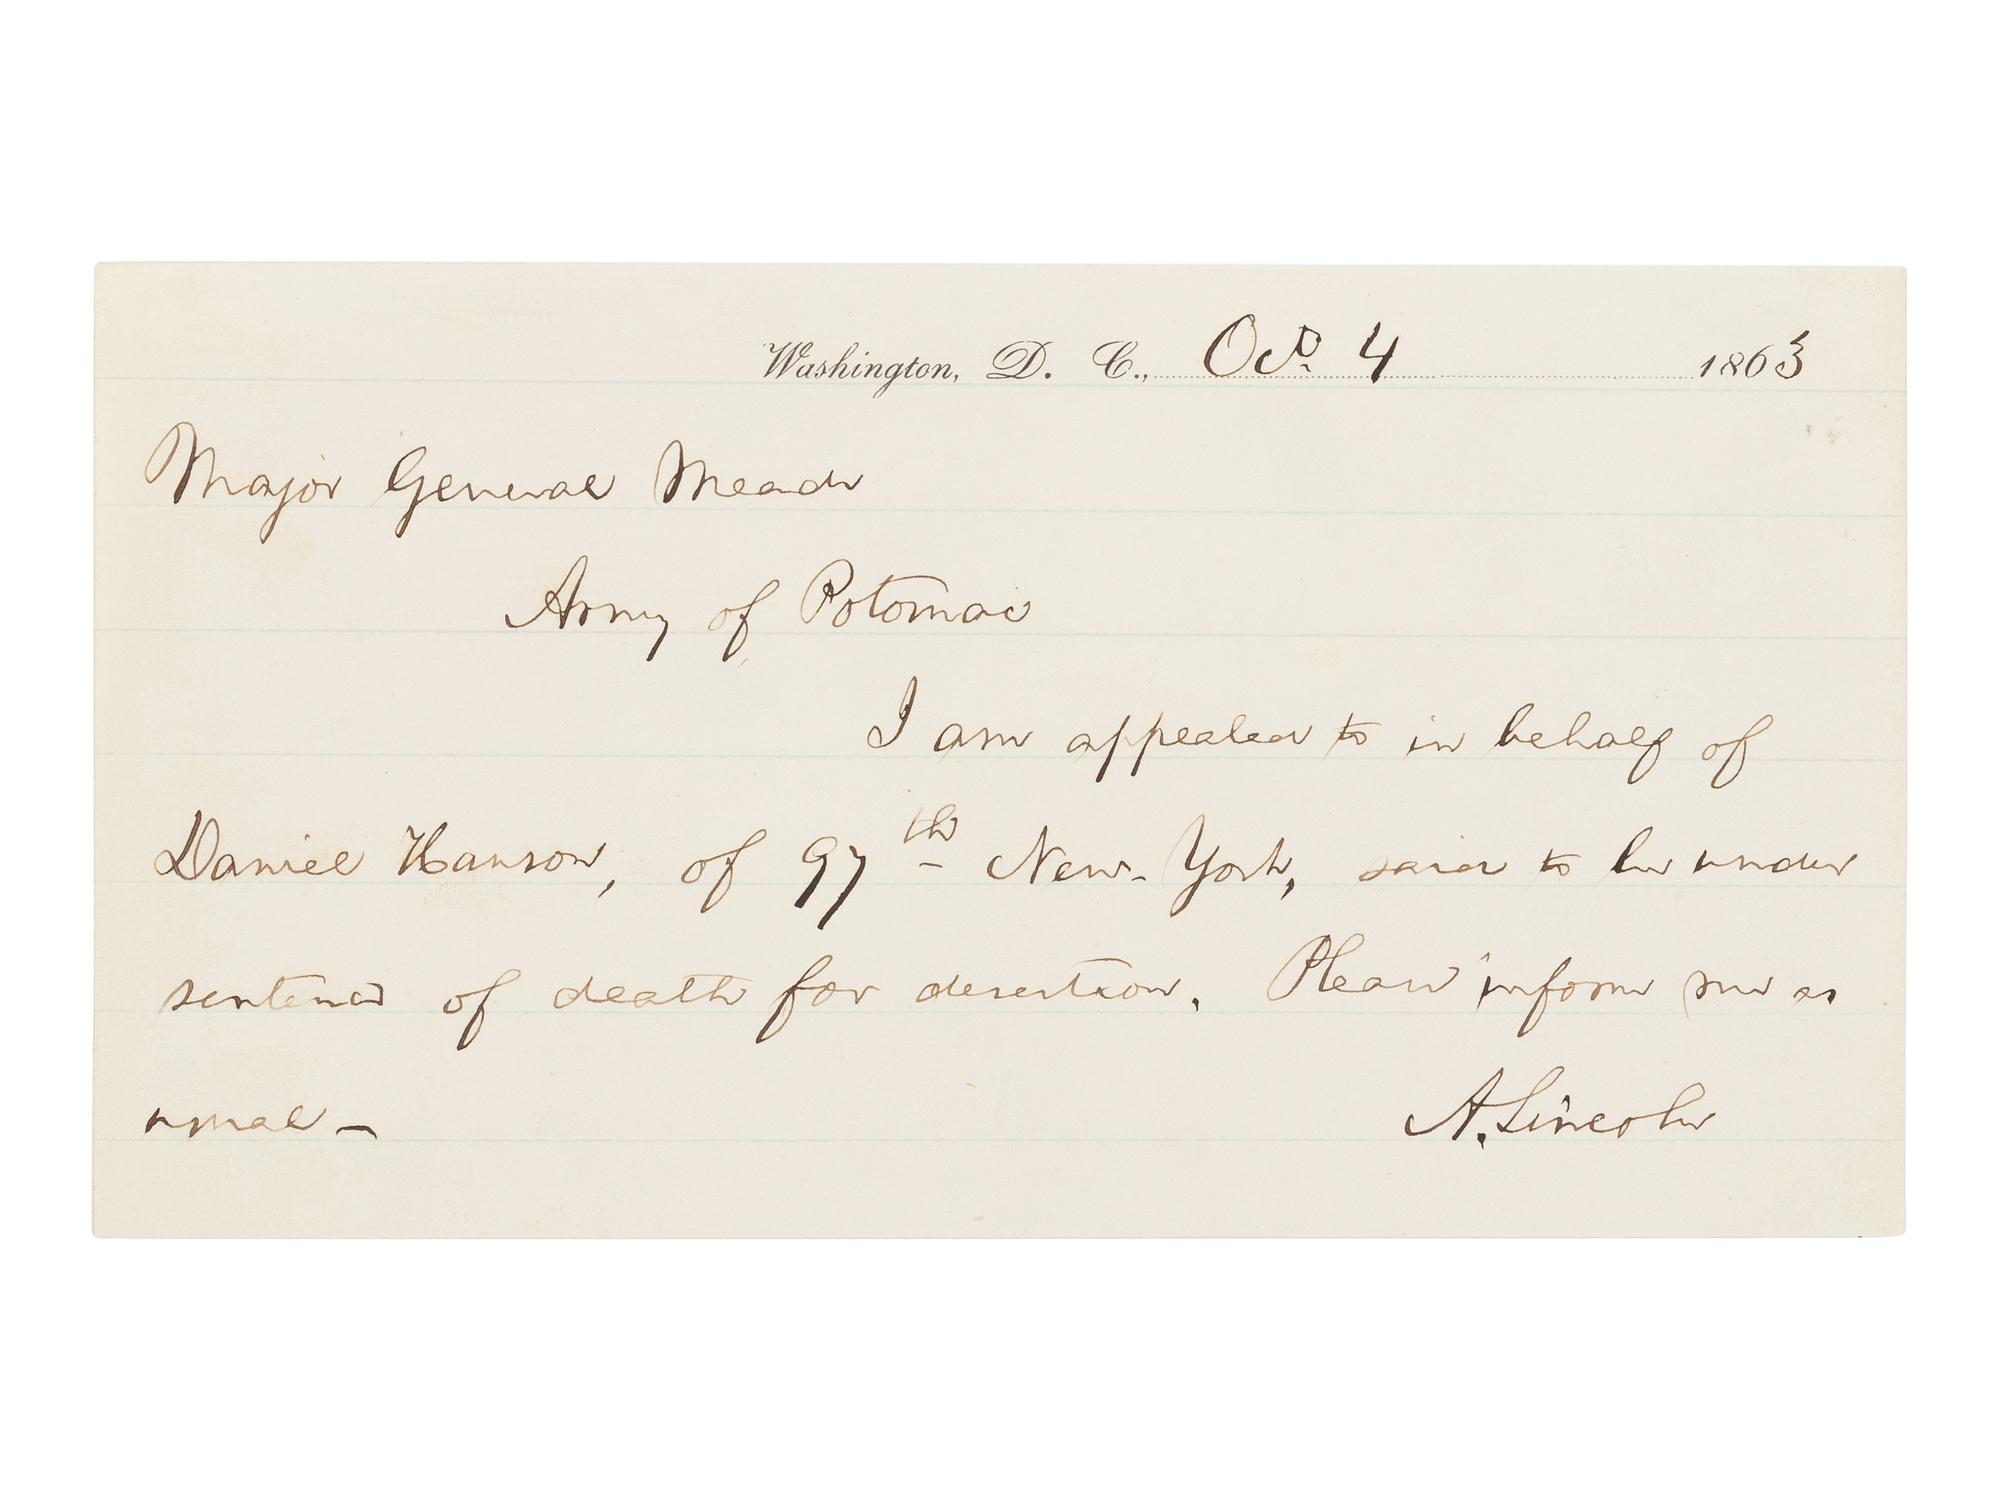 Washington, D. C., Oct. 4 1863
Major General Meade
Army of Potomac
I am appealed to in behalf of
Daniel Hanson, of 97th New-York, said to be under
sentence of death for desertion. Please inform me as
usual—
A. Lincoln